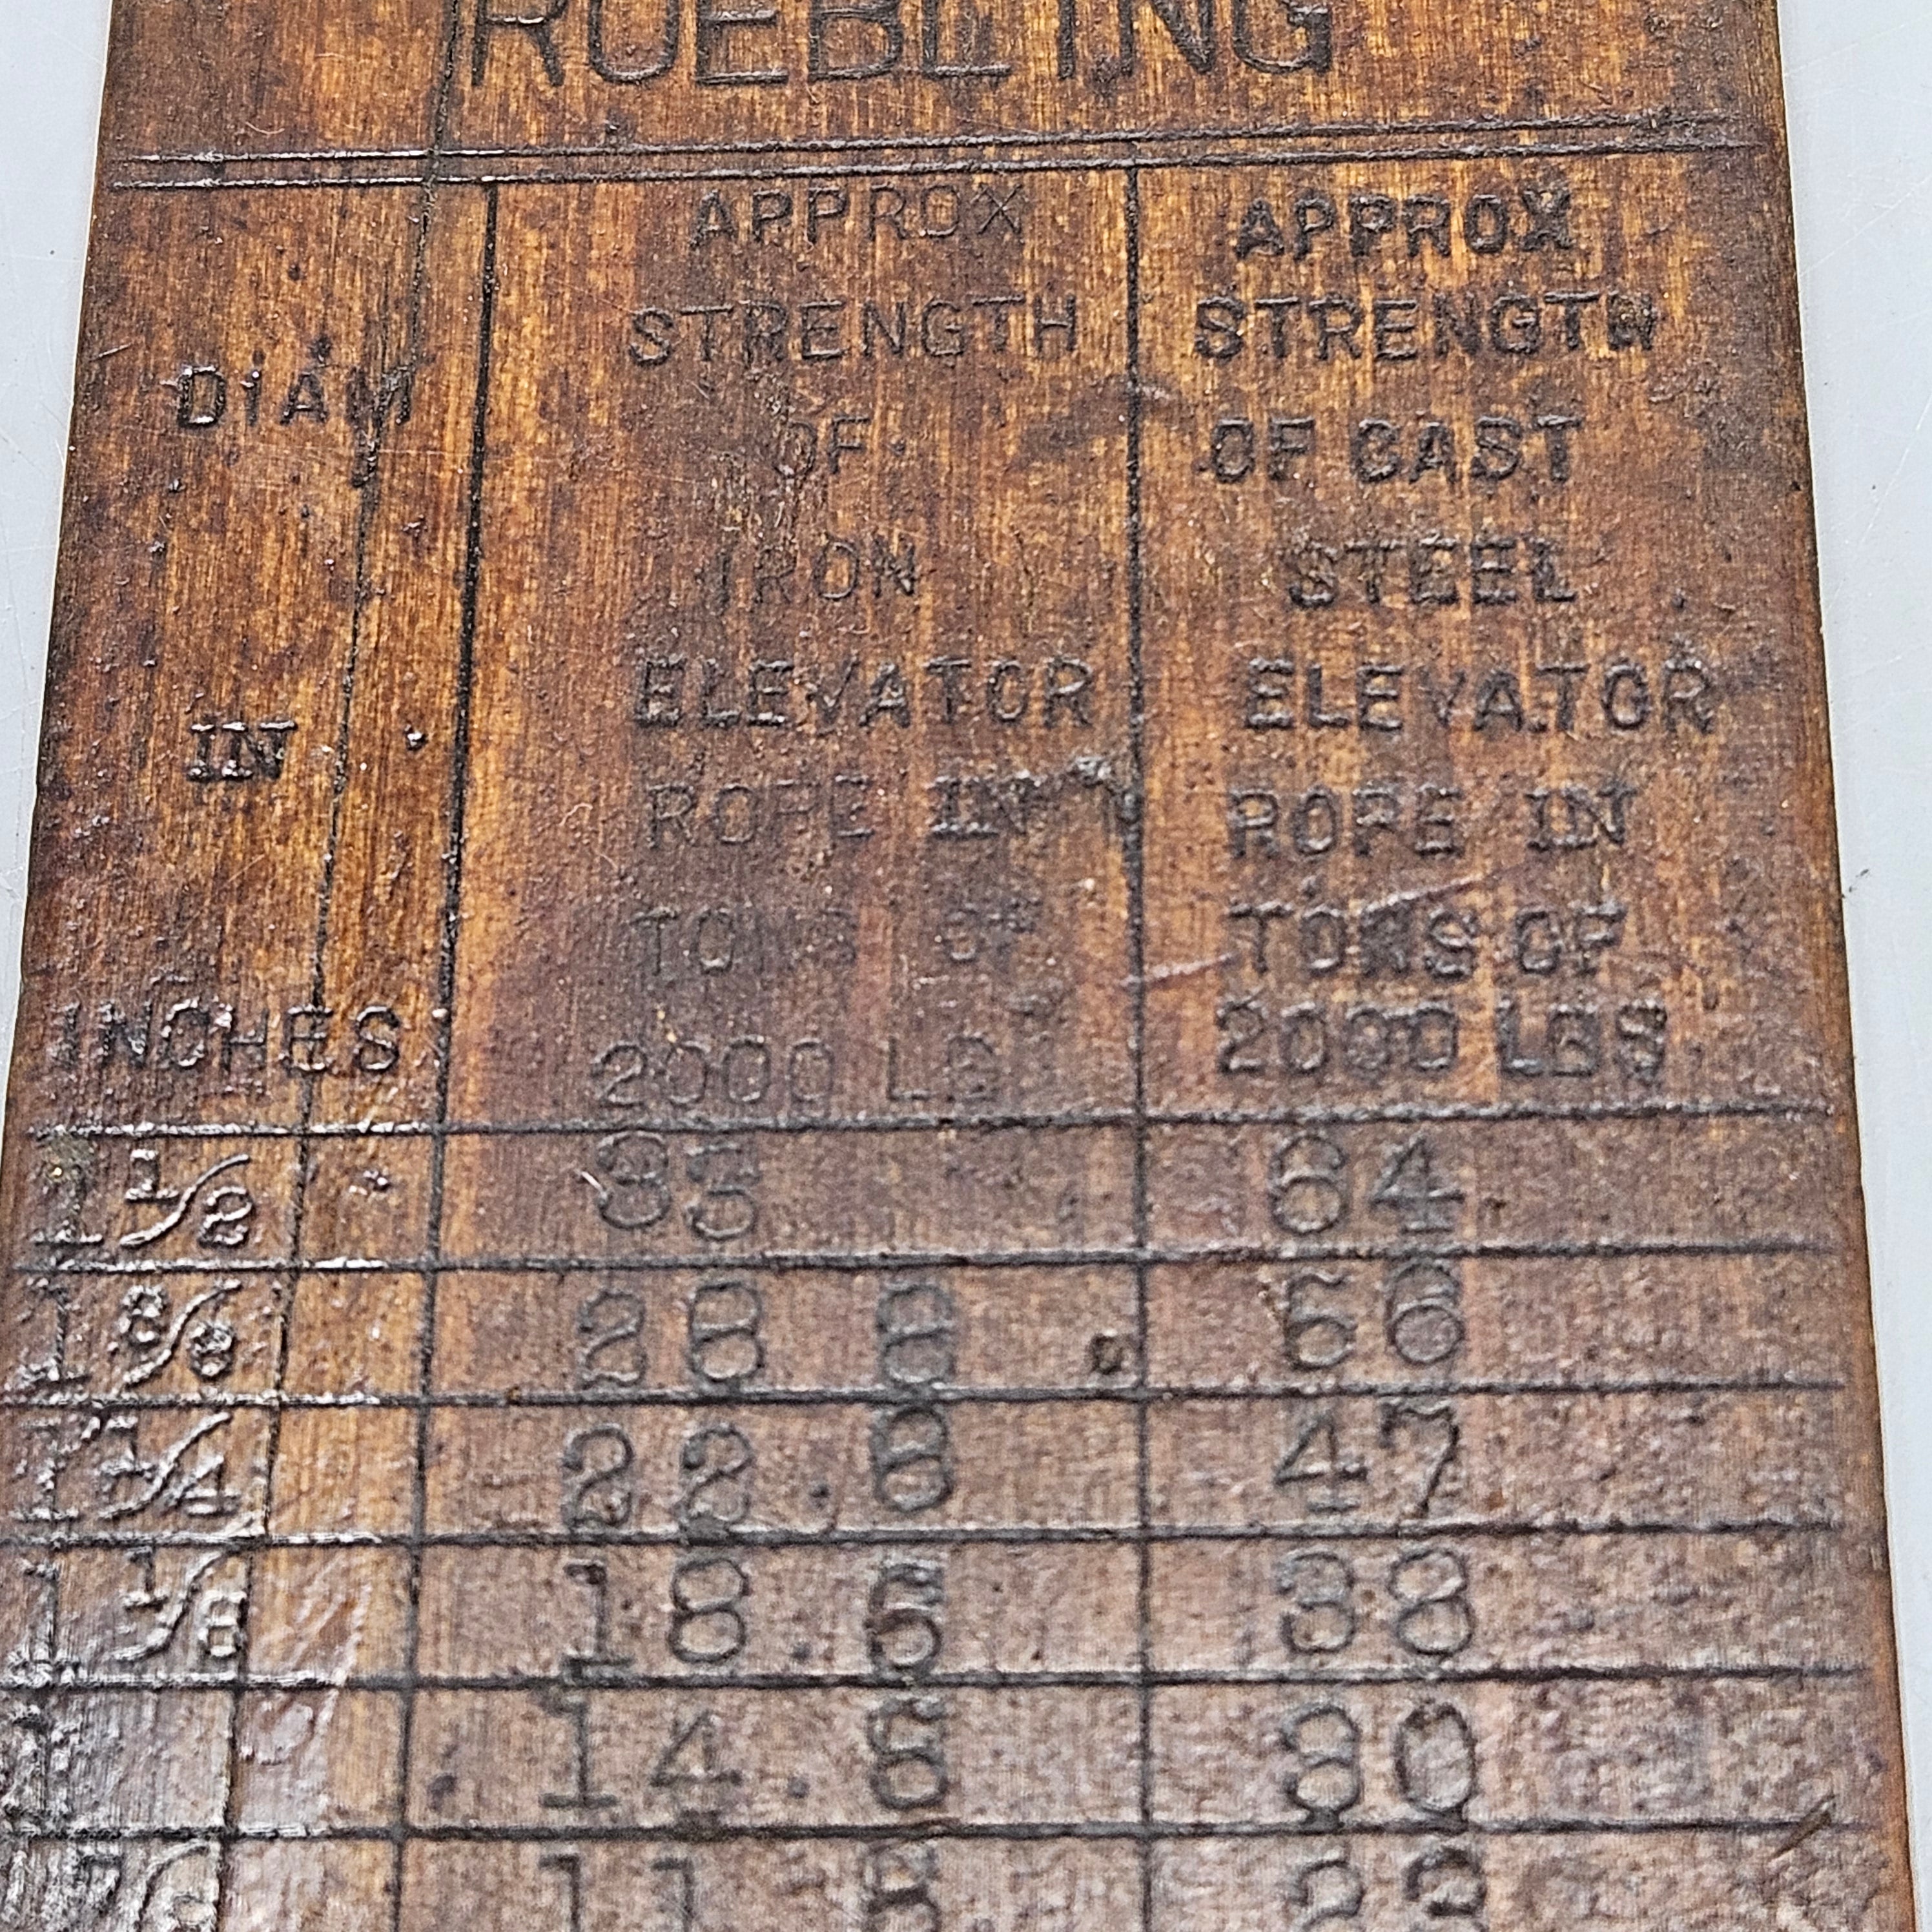 ROEBLING
DIAM
IN
INCHES
APPROX
STRENGTH
OF
IRON
ELEVATOR
ROPE IN
TONS OF
2000 LB
APPROX
STRENGTH
OF CAST
STEEL
ELEVATOR
ROPE IN
TONS OF
2000 LBS
1 1/2 33 64
1 3/8 28 8 56
1 1/4 22.8 47
1 1/8 18.6 38
1 14.5 30
7/8 11.8 23